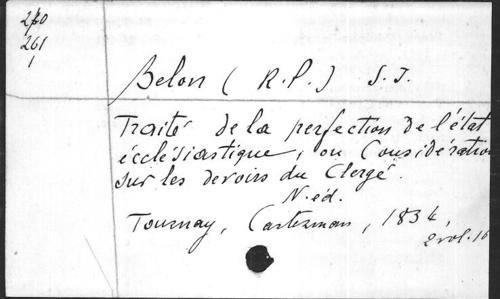 240
261
1
Belon (R.P.) S.J.
Traité de la perfection de l'état
écclésiastique, ou Considération
sur les devoirs du Clergé.
N. éd.
Tournay, Casterman, 1834,
2 vol. 16